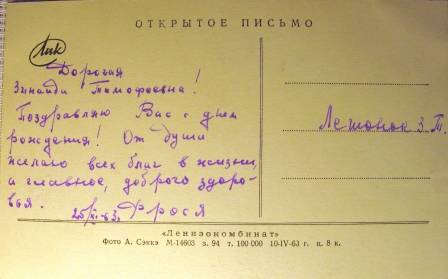 ОТКРЫТОЕ ПИСЬМО
Лик
Дорогая
Зинаида Тимофеевна!
Поздравляю Вас с днем
рождения! От души
желаю всех благ в жизни,
а главное, доброго здоро-
вья.
25/XI-63. Фрося
Лешонок З.Т.
«Ленизокомбинат»
Фото А. Сэккэ М-14603 з. 94 т. 100 000 10-IV-63 г. ц. 8 к.